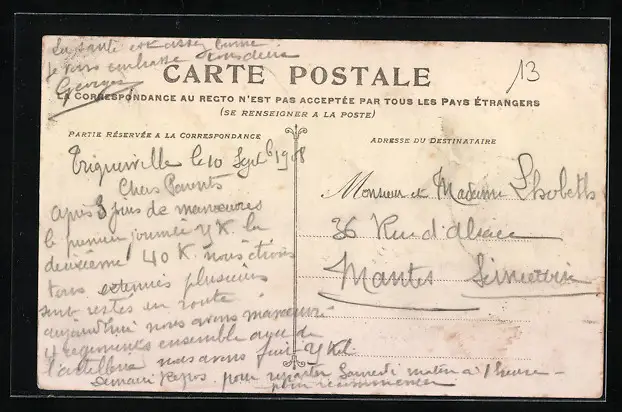 La santé est assez bonne
je vous embrasse tous deux
Georges
CARTE POSTALE
LA CORRESPONDANCE AU RECTO N'EST PAS ACCEPTÉE PAR TOUS LES PAYS ÉTRANGERS
(SE RENSEIGNER A LA POSTE)
13
PARTIE RÉSERVÉE A LA CORRESPONDANCE
le 10 Septb 1908
Chers Parents
Après 3 jours de manœuvres
la première journée K. la
deuxième 40 K. nous étions
tous exténués plusieurs
sont restés en route
aujourd'hui nous avons manœuvré
4 régiments ensemble avec de
l'artillerie nous avons fait K
demain Repos pour repartir Samedi matin à 1 heure
pour recommencer
ADRESSE DU DESTINATAIRE
Monsieur et Madame
36 Rue d'Alsace
Mantes